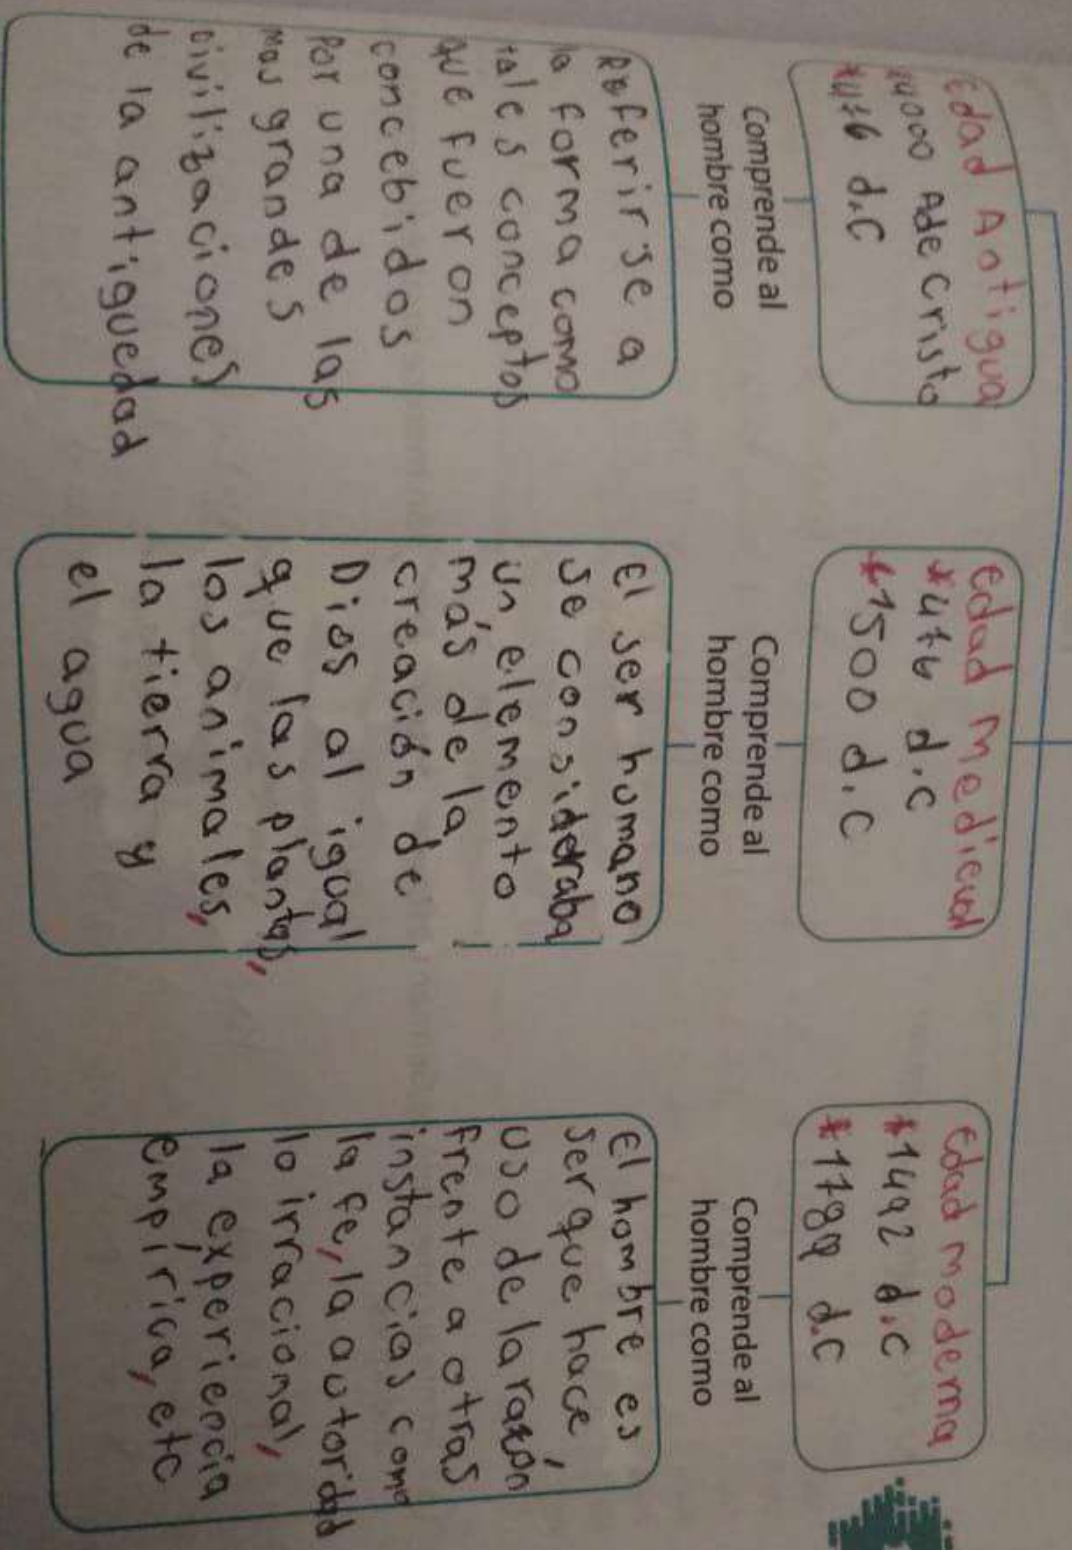 Edad Antigua
*4000 A de cristo
*476 d.C
Comprende al
hombre como
Referirse a
la forma como
tales conceptos
que fueron
concebidos
Por una de las
mas grandes
civilizaciones
de la antiguedad
Edad medieval
*476 d.C
*1500 d.C
Comprende al
hombre como
El ser humano
se consideraba
un elemento
más de la
creación de
Dios al igual
que las plantas,
los animales,
la tierra y
el agua
Edad moderna
*1492 d.C
*1789 d.C
Comprende al
hombre como
El hombre es
ser que hace
uso de la razón
frente a otras
instancias como
la fe, la autoridad
lo irracional,
la experiencia
empírica, etc